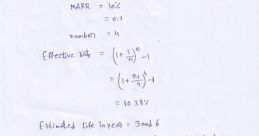 MARR = 10%
= 0.1
number = 4
Effective rate = (1 + i/n)^n - 1
= (1 + 0.1/4)^4 - 1
= 10.38%
Estimated life in years = 3 and 6